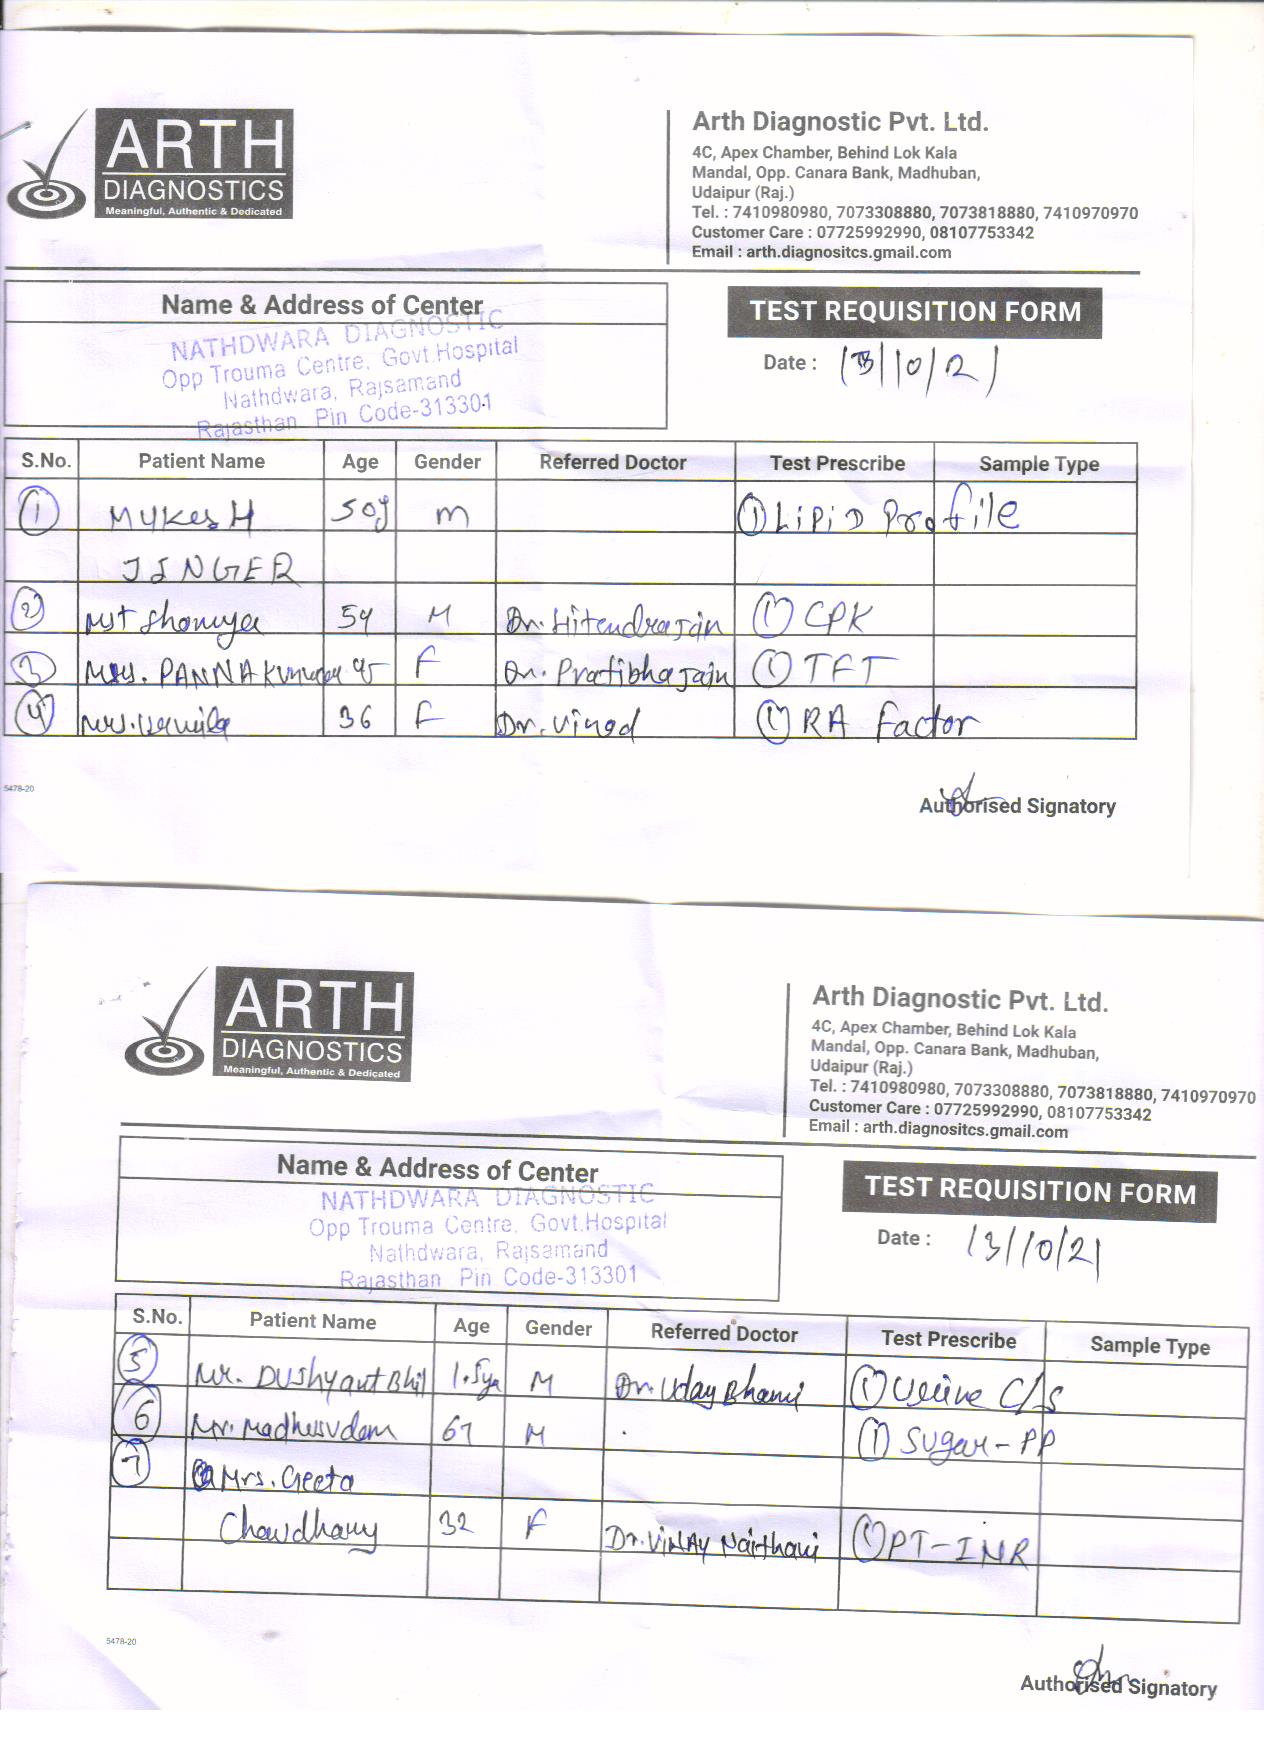 ARTH
DIAGNOSTICS
Meaningful, Authentic & Dedicated
Arth Diagnostic Pvt. Ltd.
4C, Apex Chamber, Behind Lok Kala
Mandal, Opp. Canara Bank, Madhuban,
Udaipur (Raj.)
Tel. : 7410980980, 7073308880, 7073818880, 7410970970
Customer Care : 07725992990, 08107753342
Email : arth.diagnositcs.gmail.com
Name & Address of Center
NATHDWARA DIAGNOSTIC
Opp Trouma Centre, Govt.Hospital
Nathdwara, Rajsamand
Rajasthan Pin Code-313301
TEST REQUISITION FORM
Date : 13/10/21
S.No. Patient Name Age Gender Referred Doctor Test Prescribe Sample Type
1 MUKesH 50y m 1 LiPiD Profile
JINGER
2 59 M Dr. Hitendra Jain 1 CPK
3 Mrs. PANNA 45 F Dr. Pratibha Jain 1 TFT
4 Mrs. 36 F Dr. Vinod 1 RA Factor
5478-20
Authorised Signatory
ARTH
DIAGNOSTICS
Meaningful, Authentic & Dedicated
Arth Diagnostic Pvt. Ltd.
4C, Apex Chamber, Behind Lok Kala
Mandal, Opp. Canara Bank, Madhuban,
Udaipur (Raj.)
Tel. : 7410980980, 7073308880, 7073818880, 7410970970
Customer Care : 07725992990, 08107753342
Email : arth.diagnositcs.gmail.com
Name & Address of Center
NATHDWARA DIAGNOSTIC
Opp Trouma Centre, Govt.Hospital
Nathdwara, Rajsamand
Rajasthan Pin Code-313301
TEST REQUISITION FORM
Date : 13/10/21
S.No. Patient Name Age Gender Referred Doctor Test Prescribe Sample Type
5 Mr. Dushyant Bhil 1.5ya M Dr. Uday Bhami 1 Urine C/S
6 Mr. Madhusudan 67 M 1 Sugar-PP
7 Mrs. Geeta
Chowdhary 32 F Dr. ViNAY Naithani 1 PT-INR
5478-20
Authorised Signatory